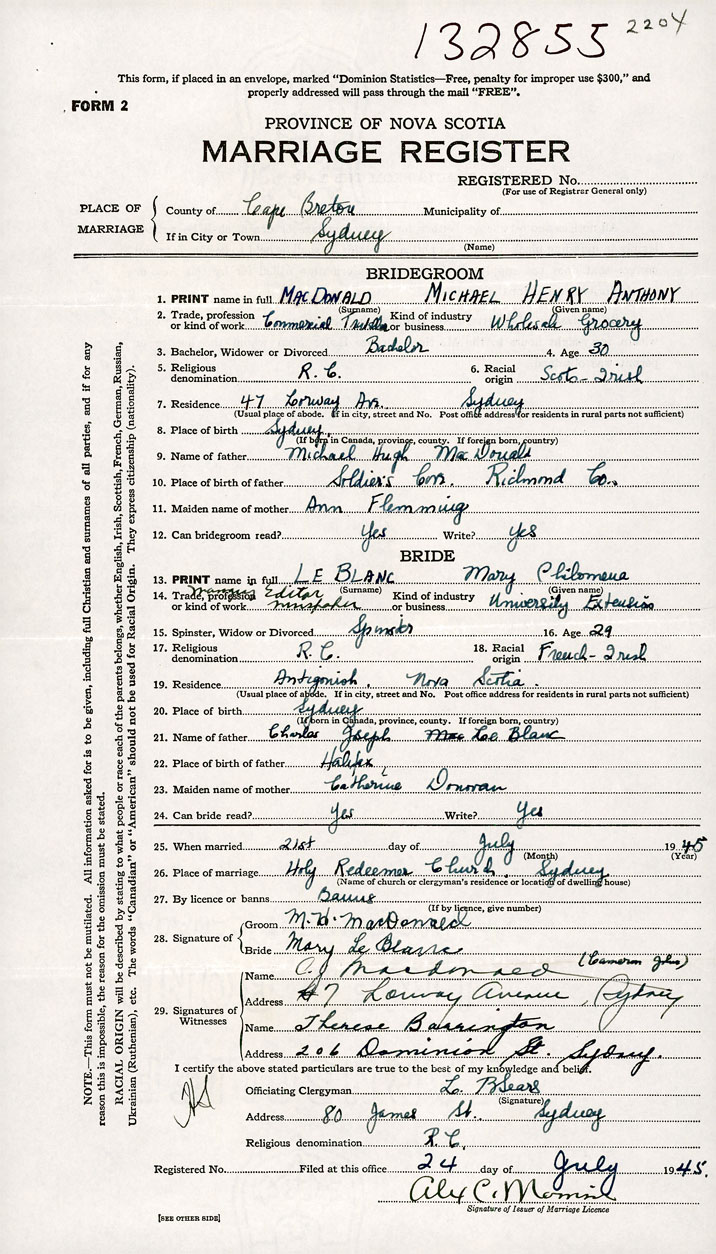 132855 2204
This form, if placed in an envelope, marked "Dominion Statistics—Free, penalty for improper use $300," and
properly addressed will pass through the mail "FREE".
FORM 2
PROVINCE OF NOVA SCOTIA
MARRIAGE REGISTER
REGISTERED No.
(For use of Registrar General only)
PLACE OF MARRIAGE
County of Cape Breton Municipality of
If in City or Town Sydney
(Name)
BRIDEGROOM
1. PRINT name in full MACDONALD MICHAEL HENRY ANTHONY
(Surname) (Given name)
2. Trade, profession or kind of work Commercial Kind of industry or business Wholesale Grocery
3. Bachelor, Widower or Divorced Bachelor 4. Age 30
5. Religious denomination R. C. 6. Racial origin Scots-Irish
7. Residence 47 Lorway Av. Sydney
(Usual place of abode. If in city, street and No. Post office address for residents in rural parts not sufficient)
8. Place of birth Sydney
(If born in Canada, province, county. If foreign born, country)
9. Name of father Michael Hugh MacDonald
10. Place of birth of father Soldier's Cove Richmond Co.
11. Maiden name of mother Ann Flemming
12. Can bridegroom read? Yes Write? Yes
BRIDE
13. PRINT name in full LE BLANC Mary Philomena
(Surname) (Given name)
14. Trade, profession or kind of work Editor newspaper Kind of industry or business University Extension
15. Spinster, Widow or Divorced Spinster 16. Age 29
17. Religious denomination R. C. 18. Racial origin French-Irish
19. Residence Antigonish, Nova Scotia.
(Usual place of abode. If in city, street and No. Post office address for residents in rural parts not sufficient)
20. Place of birth Sydney
(If born in Canada, province, county. If foreign born, country)
21. Name of father Charles Joseph Mac Le Blanc
22. Place of birth of father Halifax
23. Maiden name of mother Catherine Donovan
24. Can bride read? Yes Write? Yes
25. When married 21st day of July 1945
(Month) (Year)
26. Place of marriage Holy Redeemer Church. Sydney
(Name of church or clergyman's residence or location of dwelling house)
27. By licence or banns Banns
(If by licence, give number)
28. Signature of
Groom M. H. MacDonald
Bride Mary Le Blanc
29. Signatures of Witnesses
(Cameron John)
Name C. J. Macdonald
Address 47 Lorway Avenue, Sydney
Name Therese Barrington
Address 206 Dominion St. Sydney.
I certify the above stated particulars are true to the best of my knowledge and belief.
Officiating Clergyman L. B Sears
(Signature)
Address 80 James St. Sydney
Religious denomination R. C.
Registered No. Filed at this office 24 day of July 1945.
Alex C.
Signature of Issuer of Marriage Licence
[SEE OTHER SIDE]
NOTE.—This form must not be mutilated. All information asked for is to be given, including full Christian and surnames of all parties, and if for any
reason this is impossible, the reason for the omission must be stated.
RACIAL ORIGIN will be described by stating to what people or race each of the parents belongs, whether English, Irish, Scottish, French, German, Russian,
Ukrainian (Ruthenian), etc. The words "Canadian" or "American" should not be used for Racial Origin. They express citizenship (nationality).